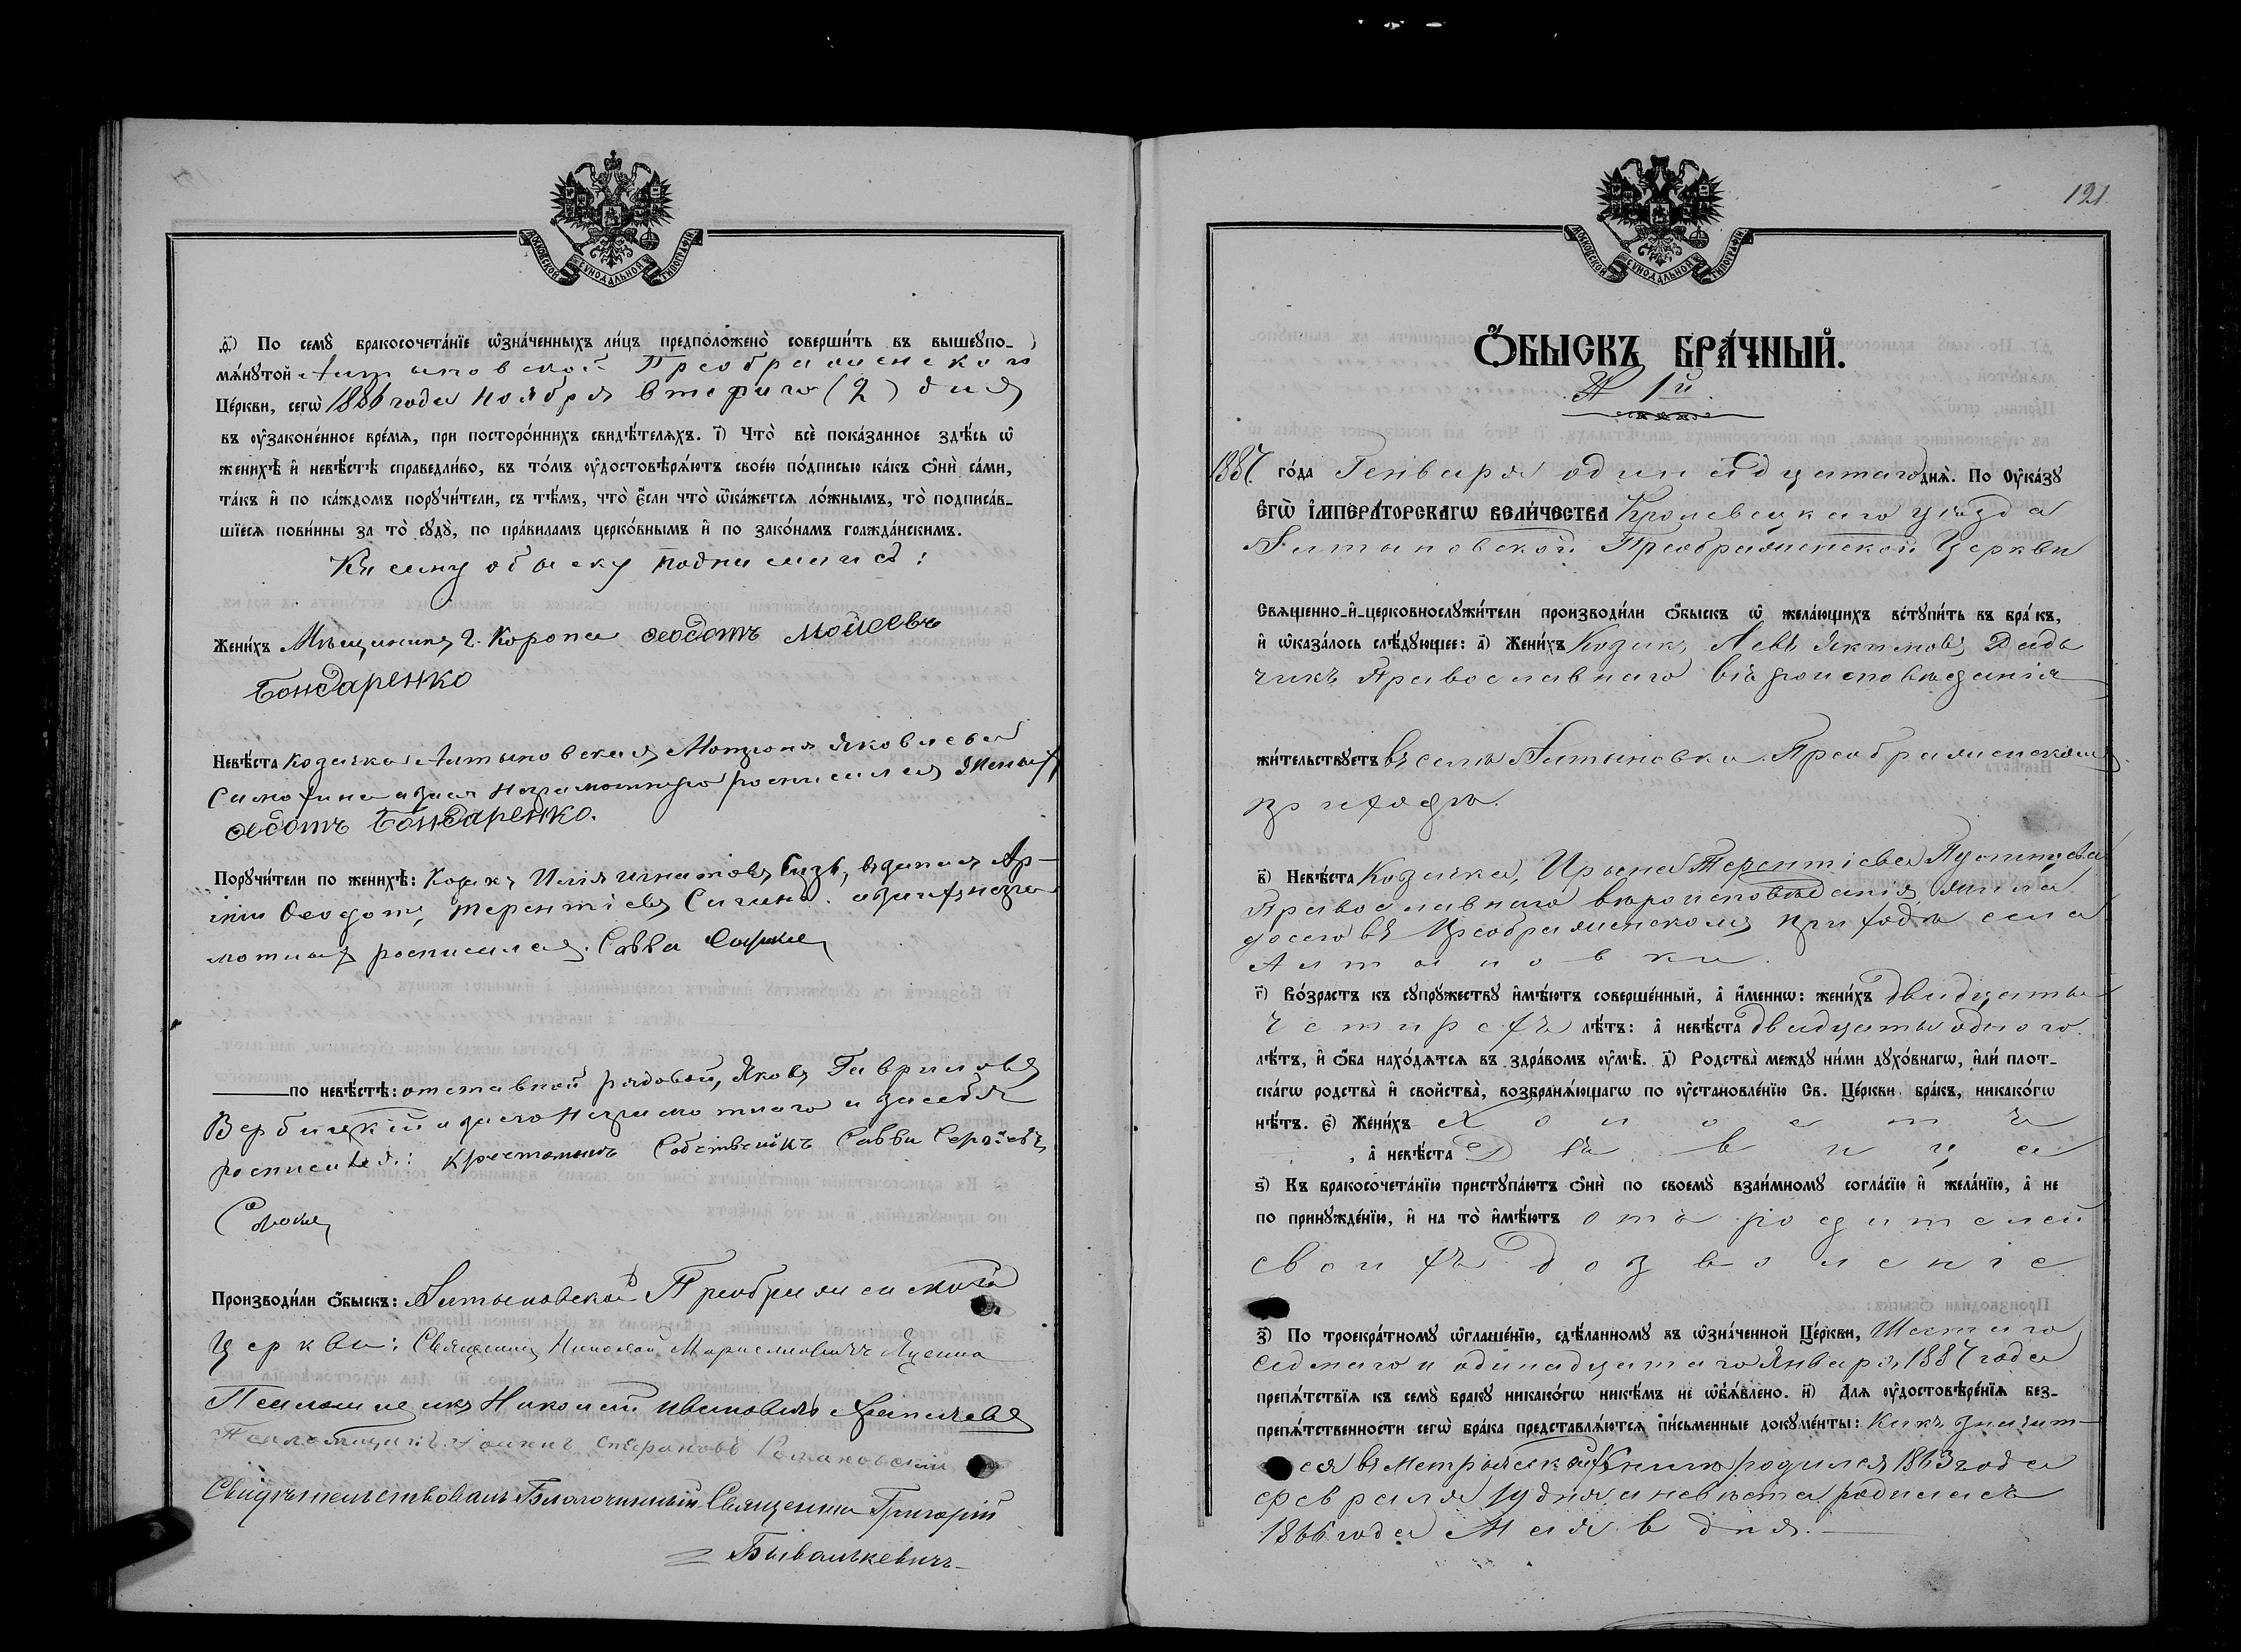 МОСКОВСКОЙ СѴНОДАЛЬНОЙ ТИПОГРАФІИ
д҃) По семꙋ̀ бракосочета́нїе ѡ҆зна́ченныхъ ли́цъ предполо́жено̀ соверши́ть въ вышеꙋпо-
мѧ́нꙋтой Алтыновской Преображенской
Це́ркви, сегѡ̀ 1886 года Ноября втораго (2) дня
въ ᲂу҆зако́ненное вре́мѧ, при посторо́ннихъ свидѣ́телѧхъ. і҃) Что̀ всѐ пока́занное здѣ́сь ѡ҆
женихѣ̀ и҆ невѣ́стѣ справедли́во, въ то́мъ ᲂу҆достовѣрѧ́ютъ свое́ю по́дписью ка́къ ѻ҆нѝ са́ми,
та́къ и҆ по ка́ждомъ порꙋчи́тели, съ тѣ́мъ, что̀ є҆́сли что̀ ѡ҆ка́жетсѧ ло́жнымъ, то̀ подписа́в-
шїесѧ пови́нны за то̀ сꙋдꙋ̀, по пра́виламъ церко́внымъ и҆ по зако́намъ гражда́нскимъ.
К сему обыску подписались:
Жени́хъ Мѣщанинъ г. Коропа Ѳеодотъ Мойсеевъ
Бондаренко
Невѣ́ста Козачка Алтыновская Яковлева
неграмотную росписался Женихъ
Ѳедотъ Бондаренко.
Порꙋчи́тели по женихѣ̀: Козакъ Илія Игнатовъ
Ѳеодотъ Терентіевъ а за ихъ негра-
мотныхъ росписался Савва
по невѣ́стѣ: отставной рядовой, Яковъ Гавриловъ
Вербицкій а за его Неграмотнаго и за себя
росписался: Крестянинъ Собственикъ Савва Сергѣевъ
Произво́дили ѻ҆́быскъ: Алтыновской Преображенской
Церкви: Священникъ Николай Яценко
Псаломщикъ Николай Ивановичъ
Псаломщикъ
Свидѣтельствовалъ Благочинный Священникъ Григорій
Бывалькевичъ
121
МОСКОВСКОЙ СѴНОДАЛЬНОЙ ТИПОГРАФІИ
Ѻ҆́БЫСКЪ БРА́ЧНЫЙ.
№ 1й
1887 го́да Генваря одинадцатаго днѧ̀. По Оу҆ка́зꙋ
Є҆ГѠ̀ І҆МПЕРА́ТОРСКАГѠ ВЕЛИ́ЧЕСТВА Кролевецкаго уѣзда
Алтыновской Преображенской Церкви
Свѧщенно-и҆-церковнослꙋжи́тели производи́ли ѻ҆́быскъ ѡ҆ жела́ющихъ встꙋпи́ть въ бра́къ,
и҆ ѡ҆каза́лось слѣ́дꙋющее: а҃) Жени́хъ Козакъ Левъ Якимовъ Дядь
чикъ Православнаго вѣроисповѣданія
жи́тельствꙋетъ въ селѣ Алтыновки Преображенскомъ
приходѣ.
в҃) Невѣ́ста Козачка, Ирына Терентіева
Православнаго вѣроисповѣданія, жила
досего въ Преображенскомъ приходѣ села
Алтыновки.
г҃) Во́зрастъ къ сꙋпрꙋжествꙋ и҆мѣ́ютъ соверше́нный, а҆ и҆́меннѡ: жени́хъ двадцать
четирехъ лѣ́тъ: а҆ невѣ́ста двадцать одного
лѣ́тъ, и҆ ѻ҆́ба нахо́дѧтсѧ въ здра́вомъ ᲂу҆мѣ̀. д҃) Родства̀ междꙋ ни́ми дꙋхо́внагѡ, и҆лѝ плот-
ска́гѡ родства̀ и҆ свойства̀, возбранѧ́ющагѡ по ᲂу҆становле́нїю Св. Це́ркви бра́къ, никако́гѡ
нѣ́тъ. є҃) Жени́хъ Холостъ
, а҆ невѣ́ста Дѣвица
ѕ҃) Къ бракосочета́нїю пристꙋпа́ютъ ѻ҆нѝ по своемꙋ̀ взаи́мномꙋ согла́сїю и҆ жела́нїю, а҆ не
по принꙋжде́нїю, и҆ на то̀ и҆мѣ́ютъ отъ родителей
своихъ дозволеніе
з҃) По троекра́тномꙋ ѡ҆глаше́нїю, сдѣ́ланномꙋ въ ѡ҆зна́ченной Це́ркви, Шестаго
седмаго и одинадцатаго Января 1887 года
препѧ́тствїѧ къ семꙋ̀ бракꙋ никако́гѡ никѣ́мъ не ѡ҆б̾ѧ́влено. и҃) Длѧ ᲂу҆достовѣре́нїѧ без-
препѧ́тственности сегѡ̀ бра́ка представлѧ́ютсѧ пи́сьменные докꙋме́нты: Какъ значит-
ся въ Метрическихъ Книгахъ родился 1863 года
февраля дня а невѣста родилась
1866 года Мая дня.